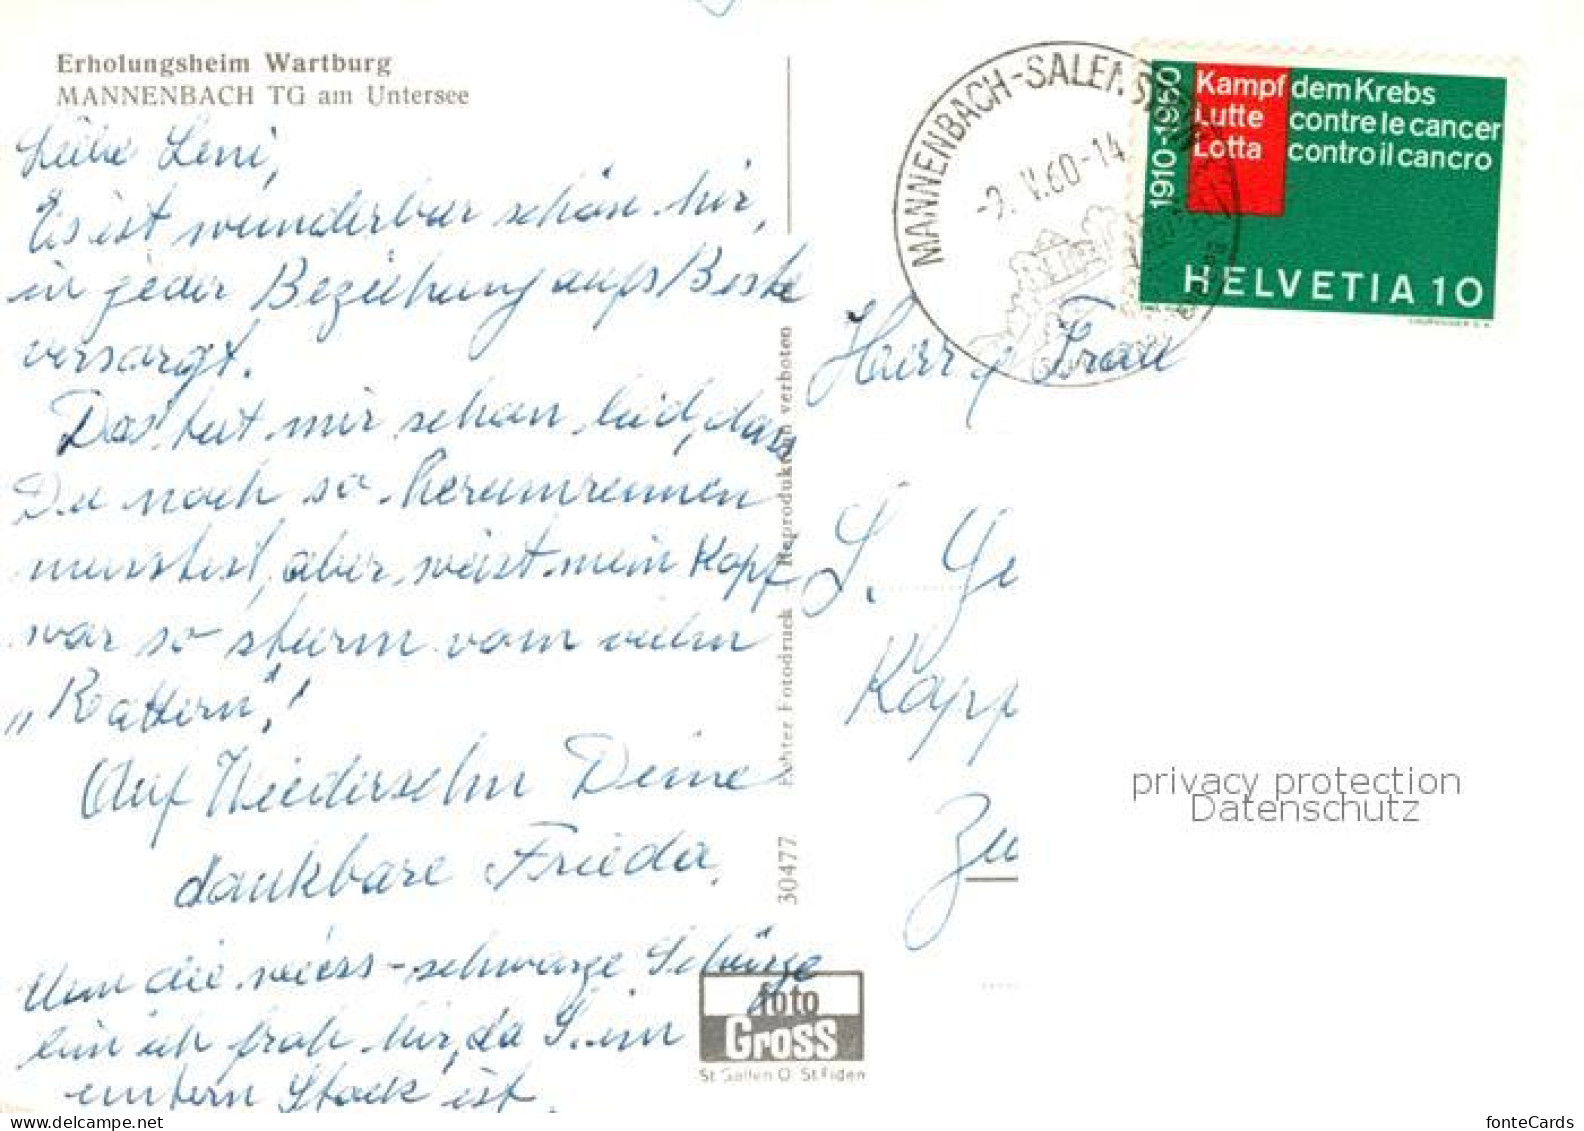 Erholungsheim Wartburg
MANNENBACH TG am Untersee
Liebe Leni,
Es ist wunderbar schön hir,
in jeder Beziehung aufs Beste
versorgt.
Das tut mir schon leid, dass
Du noch so herumrennen
musstest, aber weist mein Kopf
war so sturm vom vielen
„Rattern"!
Auf Wiedersehn Deine
dankbare Frieda.
Um die weiss-schwarze Schürze
bin ich froh hir, da S. im
untern Stock ist.
Echter Fotodruck Reproduktion verboten
30477
foto
Gross
St Gallen O. St Fiden
MANNENBACH-SALENSTEIN
-9. V.60-14
1910-1960
Kampf dem Krebs
Lutte contre le cancer
Lotta contro il cancro
HELVETIA 10
COURVOISIER S.A.
Herr & Frau
S. Ge
Kapp
Zu
privacy protection
Datenschutz
fonteCards